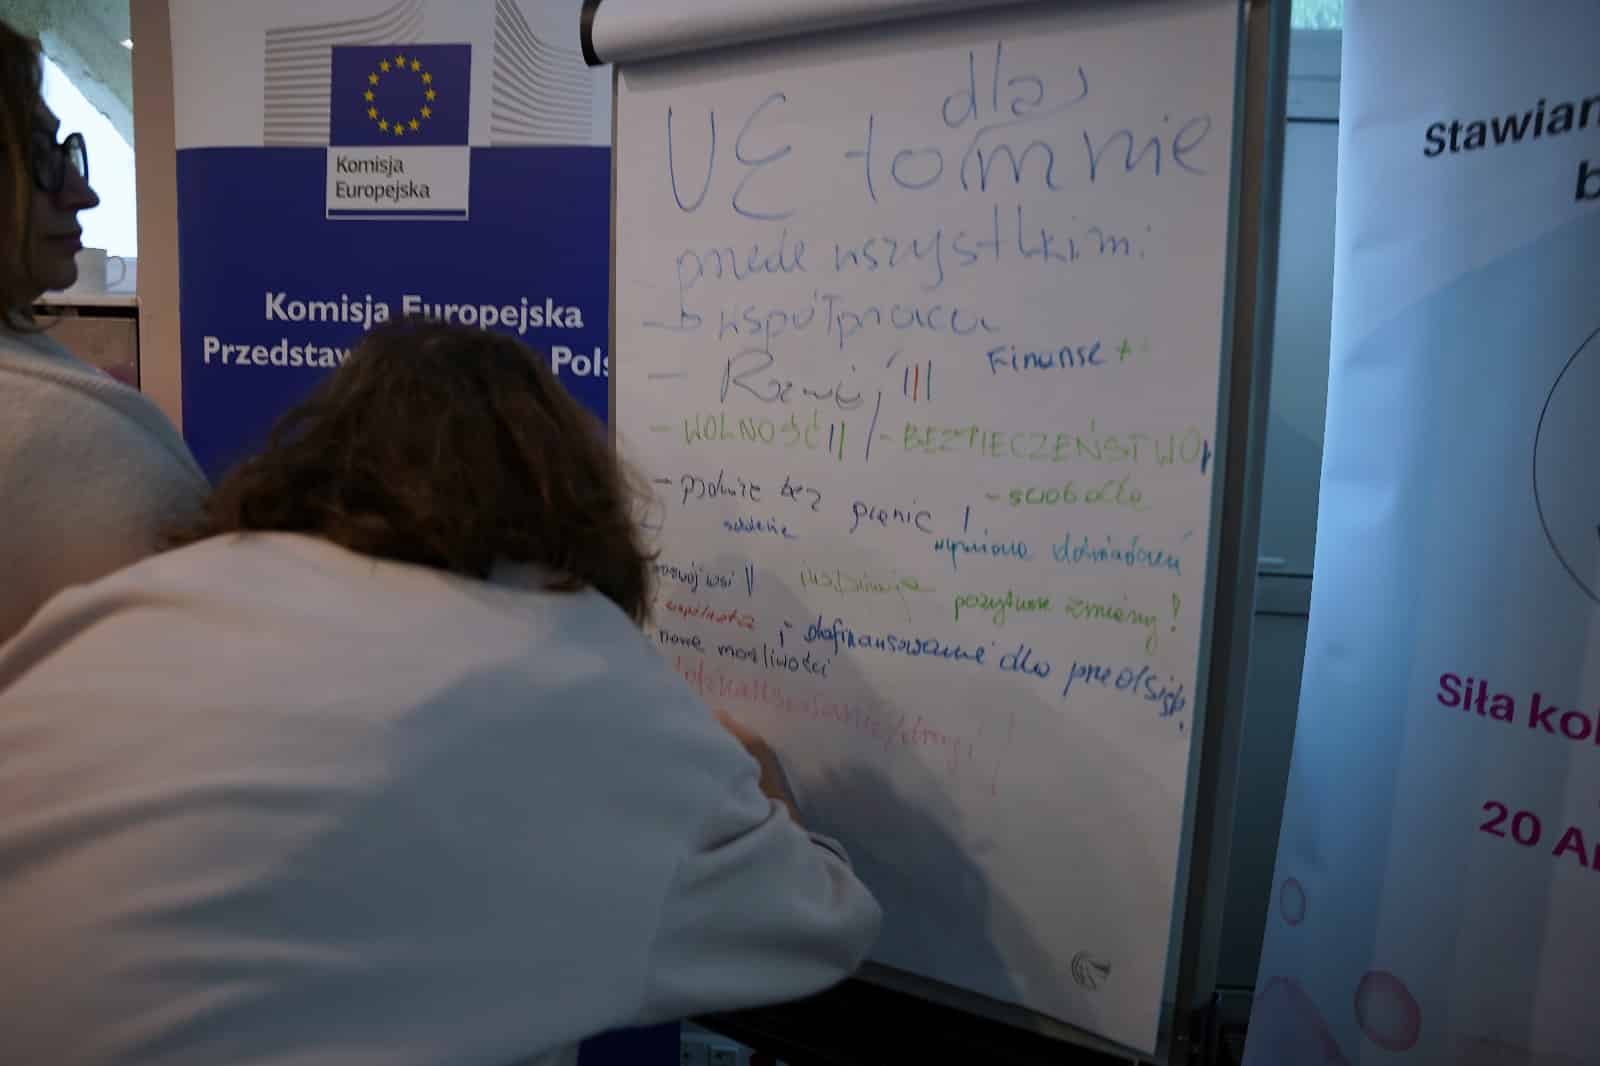 Komisja
Europejska
Komisja Europejska
Przedstaw Pols
dla
UE to mnie
przede wszystkim:
współpraca
- Rozwój III
Finanse +
- WOLNOŚĆ II / - BEZPIECZEŃSTWO I
- podróże bez granic !
- swoboda
wymiana doświadczeń
rozwój wsi II
inspiracje
pozytywne zmiany!
wspólnota
i dofinansowanie dla przedsięb.
nowe możliwości
dofinansowanie/drogi
Stawian
b
Siła kob
20 A